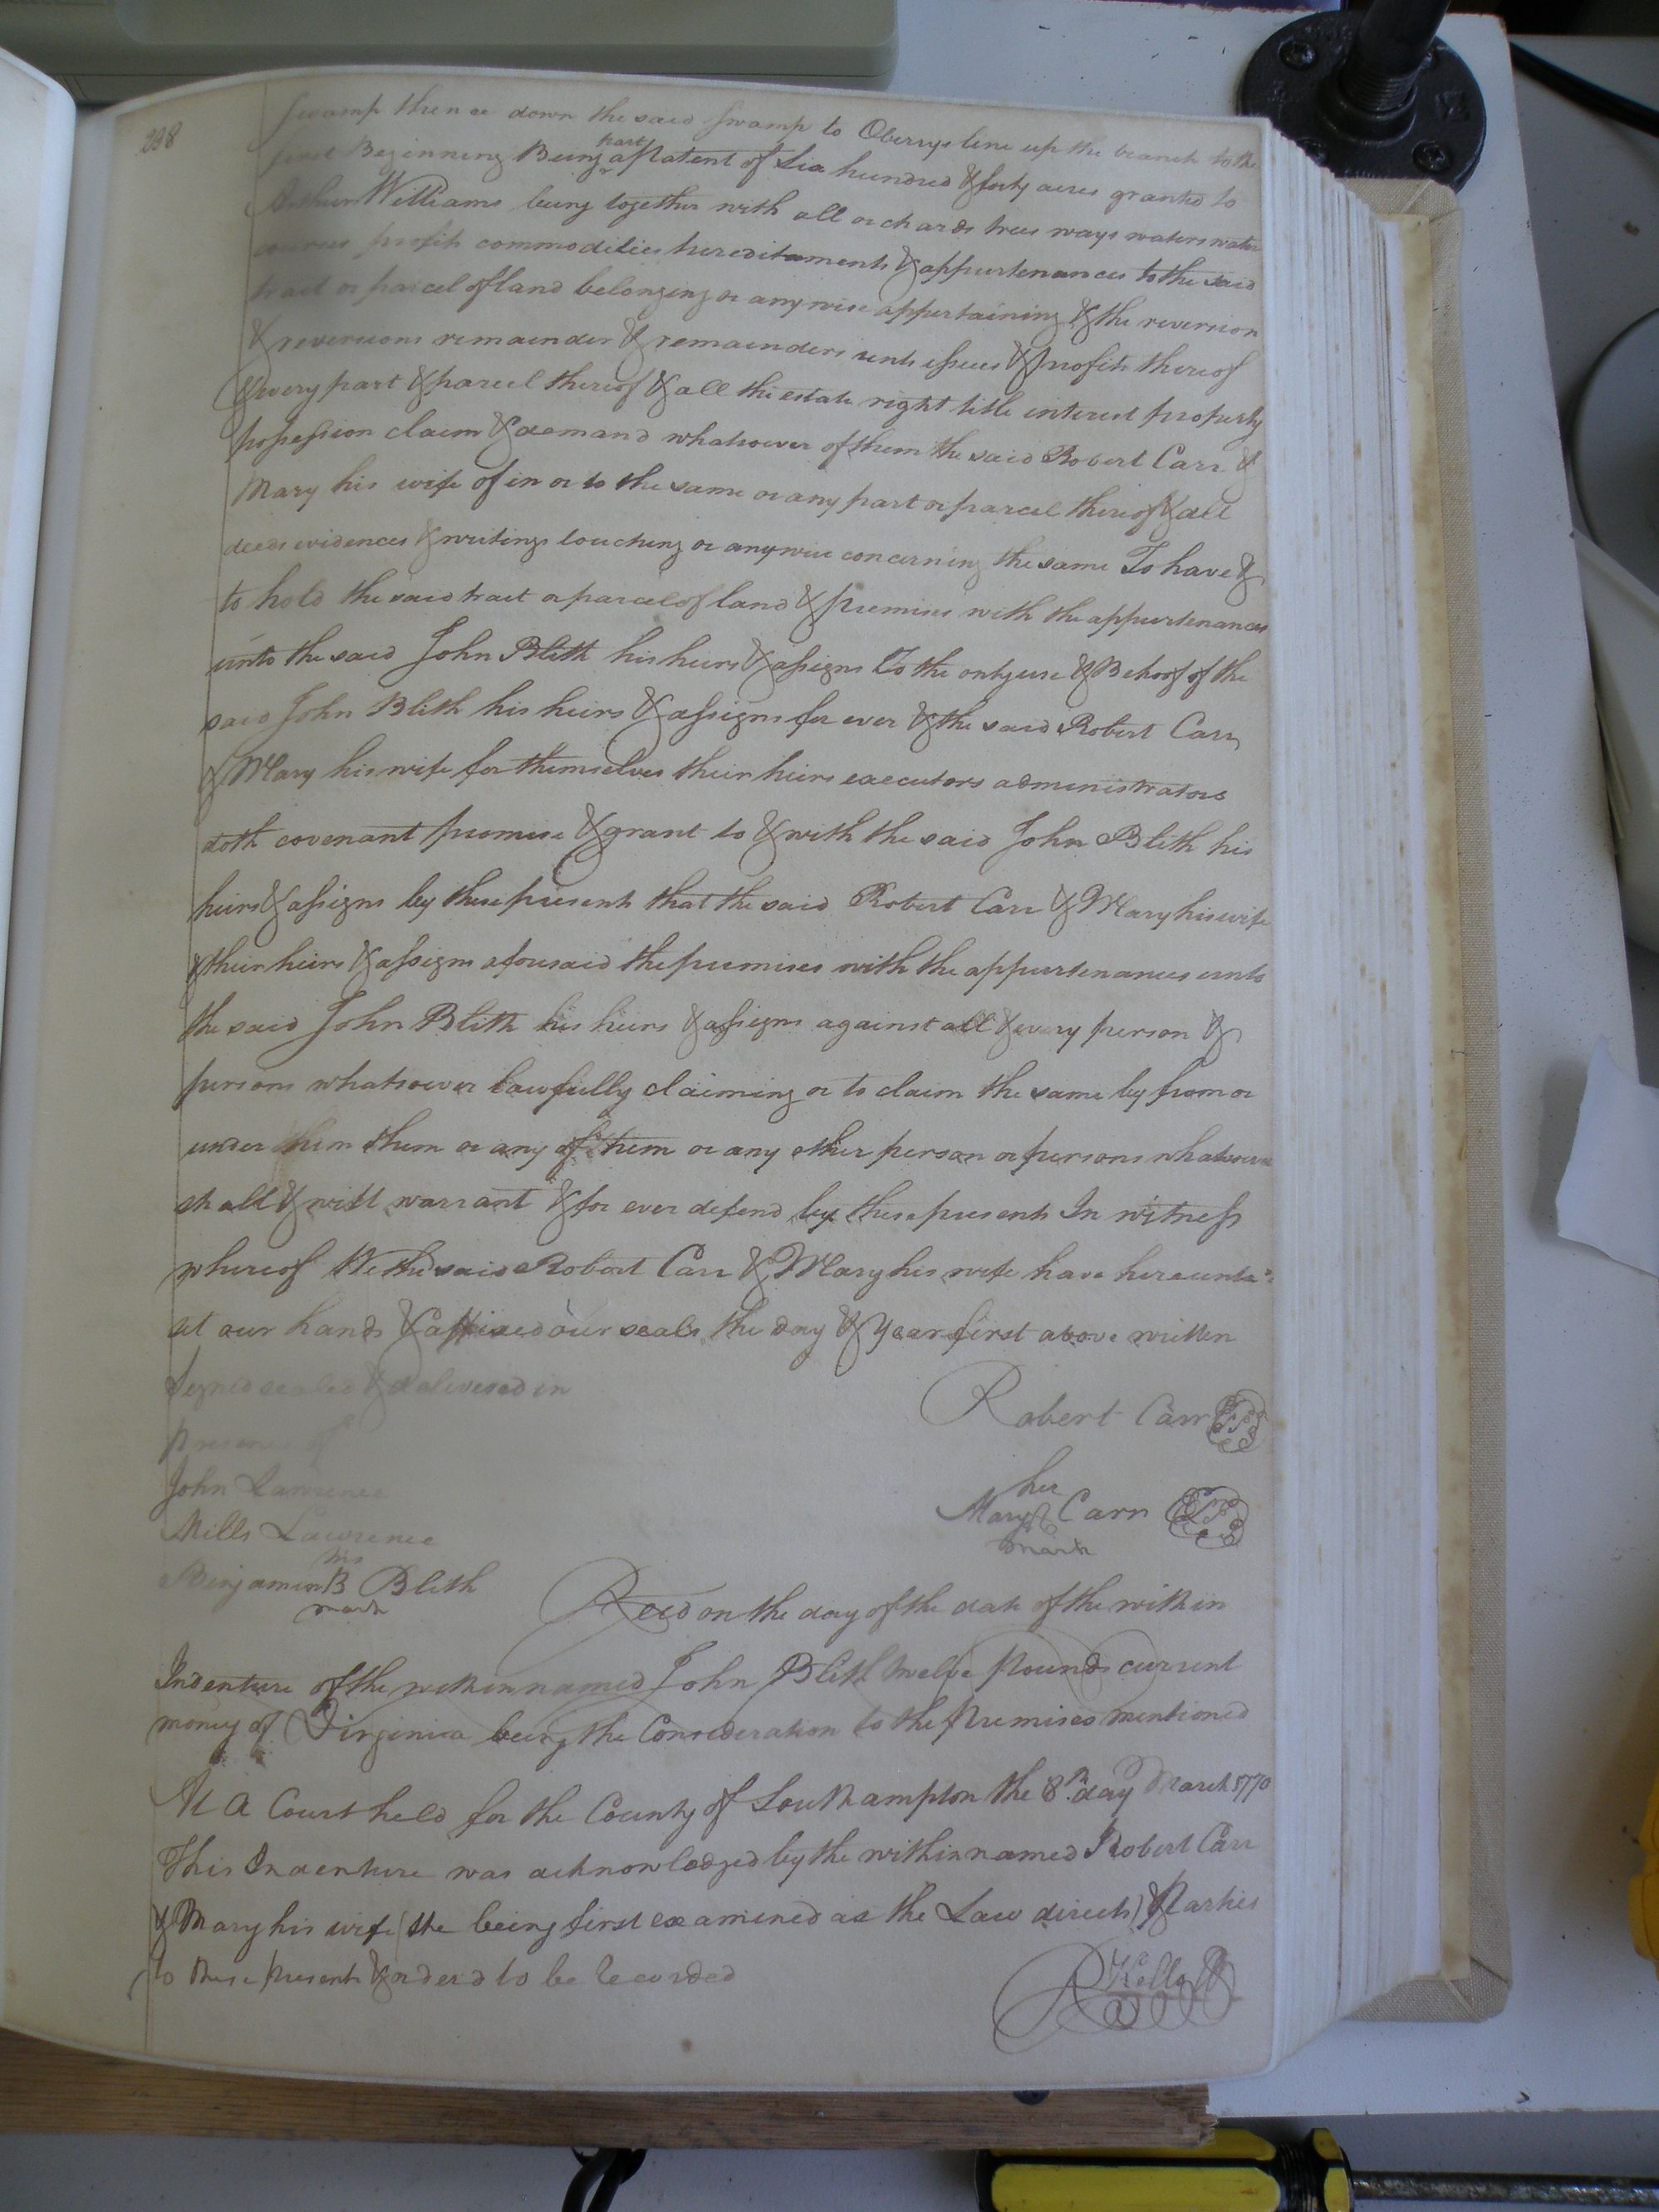 238
Swamp thence down the said Swamp to Oberrys line up the branch to the
first Beginning Being part a Patent of Six hundred & forty acres granted to
Arthur Williams being together with all orchards trees ways waters water
courses profits commodities hereditaments & appurtenances to the said
tract or parcel of land belonging or any wise appertaining & the reversion
& reversions remainder & remainders rents issues & profits thereof
& every part & parcel thereof & all the estate right title interest property
possession claim & demand whatsoever of them the said Robert Carr &
Mary his wife of in or to the same or any part or parcel thereof & all
deeds evidences & writings touching or anywise concerning the same To have &
to hold the said tract or parcel of land & premises with the appurtenances
unto the said John Blith his heirs & assigns To the only use & Behoof of the
said John Blith his heirs & assigns for ever & the said Robert Carr
& Mary his wife for themselves their heirs executors administrators
doth covenant promise & grant to & with the said John Blith his
heirs & assigns by these presents that the said Robert Carr & Mary his wife
& their heirs & assigns aforesaid the premises with the appurtenances unto
the said John Blith his heirs & assigns against all & every person &
persons whatsoever lawfully claiming or to claim the same by from or
under them or any of them or any other person or persons whatsoever
shall & will warrant & for ever defend by these presents In witness
whereof We the said Robert Carr & Mary his wife have hereunto
set our hands & affixed our seals the day & year first above written
Signed sealed & delivered in
presence of
Robert Carr LS
John Lawrence
her
Mary Carr LS
mark
Mills Lawrence
his
Benjamin B Blith
mark
Recd on the day of the date of the within
Indenture of the within named John Blith twelve Pounds current
money of Virginia being the Consideration to the Premises mentioned
At a Court held for the County of Southampton the 8th day March 1770
This Indenture was acknowledged by the within named Robert Carr
& Mary his wife (she being first examined as the Law directs) & Parties
to these presents & orderd to be Recorded
R Kello